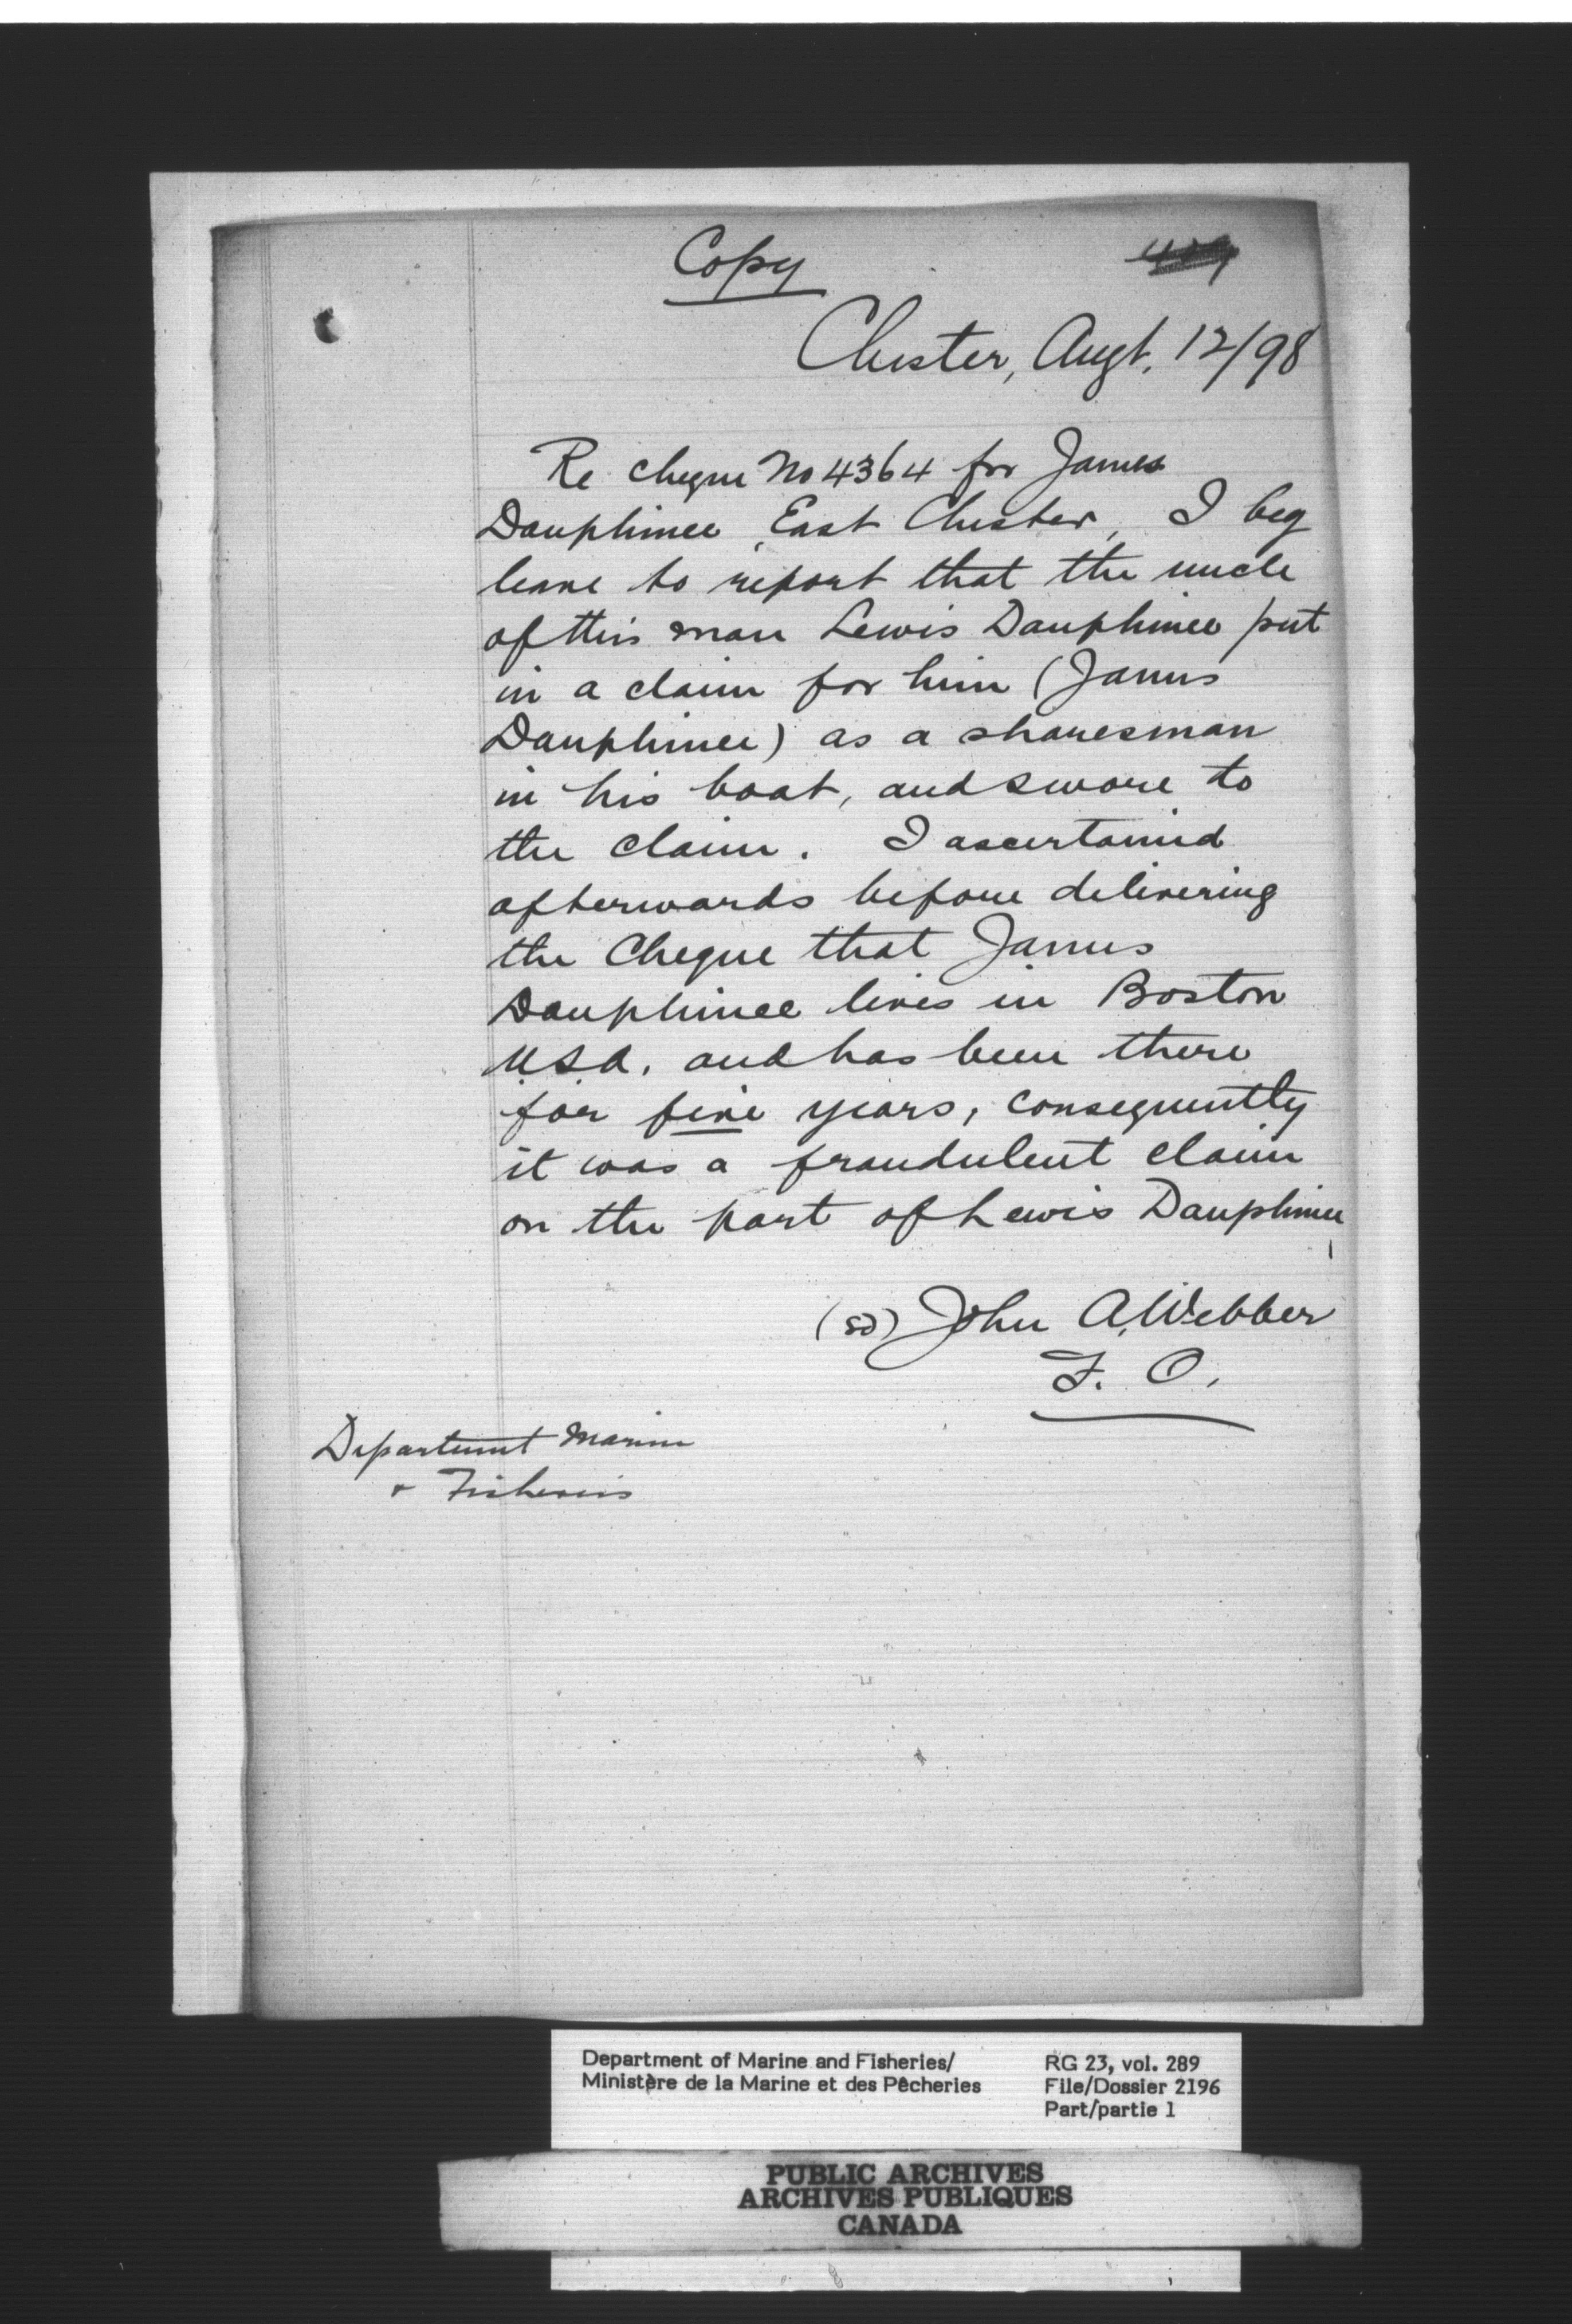 Copy
Chester, Augt. 12/98
Re cheque No 4364 for James
Dauphinee, East Chester, I beg
leave to report that the uncle
of this man Lewis Dauphinee put
in a claim for him (James
Dauphinee) as a sharesman
in his boat, and swore to
the claim. I ascertained
afterwards before delivering
the Cheque that James
Dauphinee lives in Boston
USA. and has been there
for five years, consequently
it was a fraudulent claim
on the part of Lewis Dauphinee
(sd) John A. Webber
F. O.
Department Marine
& Fisheries
Department of Marine and Fisheries/
Ministère de la Marine et des Pêcheries
RG 23, vol. 289
File/Dossier 2196
Part/partie 1
PUBLIC ARCHIVES
ARCHIVES PUBLIQUES
CANADA